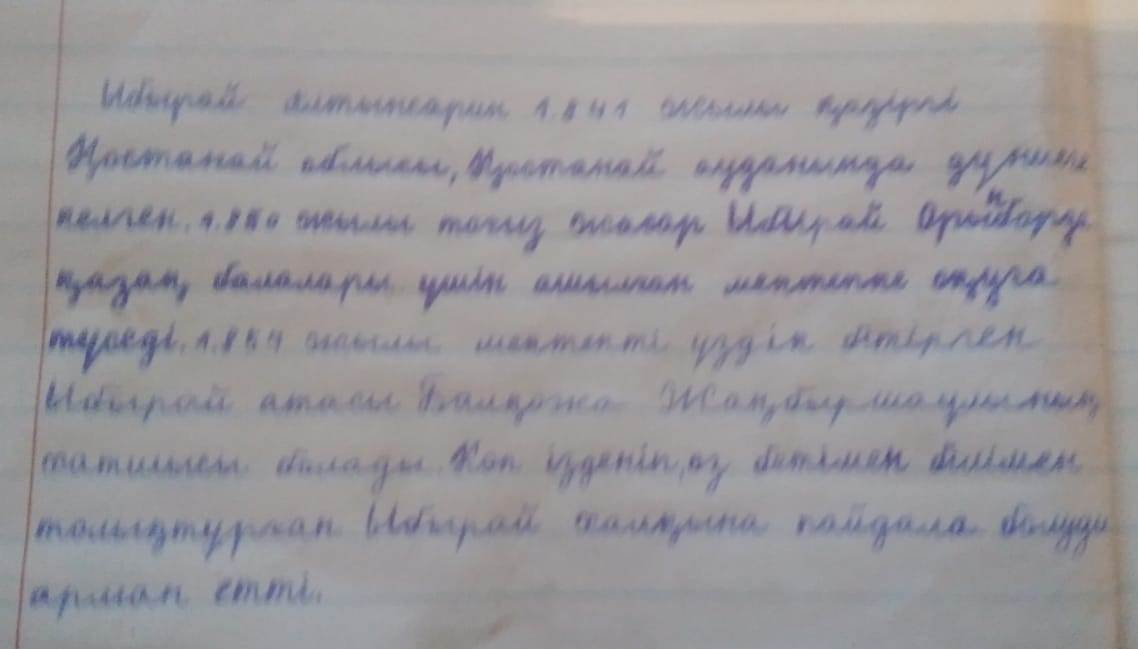 Ыбырай Алтынсарин 1.841 жылы қазіргі
Қостанай облысы, Қостанай ауданында дүниеге
келген. 1.850 жылы тоғыз жасар Ыбырай Орынборда
қазақ балалары үшін ашылған мектепке оқуға
түседі. 1.854 жылы мектепті үздік бітірген
Ыбырай атасы Балқожа Жаңбыршыұлының
болады. Көп ізденіп, өз бетімен білімін
толықтырған Ыбырай халқына пайдалы болуды
арман етті.